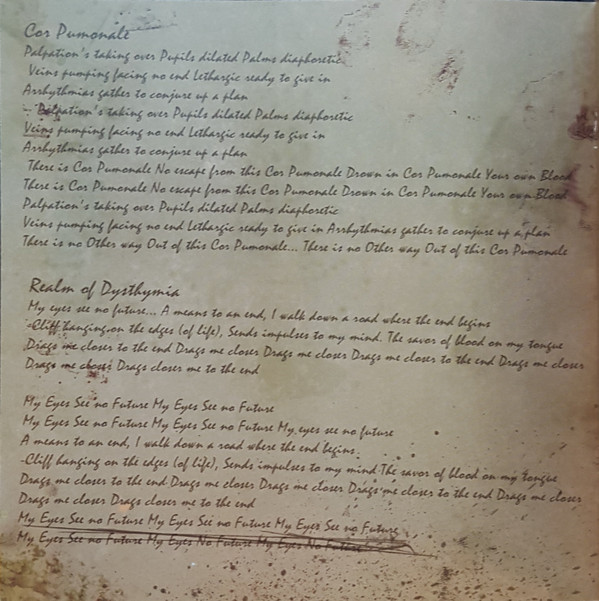 Cor Pumonale
Palpation's taking over Pupils dilated Palms diaphoretic
Veins pumping facing no end Lethargic ready to give in
Arrhythmias gather to conjure up a plan
Palpation's taking over Pupils dilated Palms diaphoretic
Veins pumping facing no end Lethargic ready to give in
Arrhythmias gather to conjure up a plan
There is Cor Pumonale No escape from this Cor Pumonale Drown in Cor Pumonale Your own Blood
There is Cor Pumonale No escape from this Cor Pumonale Drown in Cor Pumonale Your own Blood
Palpation's taking over Pupils dilated Palms diaphoretic
Veins pumping facing no end Lethargic ready to give in Arrhythmias gather to conjure up a plan
There is no Other way Out of this Cor Pumonale... There is no Other way Out of this Cor Pumonale
Realm of Dysthymia
My eyes see no future... A means to an end, I walk down a road where the end begins
-Cliff hanging on the edges (of life), Sends impulses to my mind. The savor of blood on my tongue
Drags me closer to the end Drags me closer Drags me closer Drags me closer to the end Drags me closer
Drags me closer Drags closer me to the end
My Eyes See no Future My Eyes See no Future
My Eyes See no Future My Eyes See no Future My eyes see no future
A means to an end, I walk down a road where the end begins
-Cliff hanging on the edges (of life), Sends impulses to my mind The savor of blood on my tongue
Drags me closer to the end Drags me closer Drags me closer Drags me closer to the end Drags me closer
Drags me closer Drags closer me to the end
My Eyes See no Future My Eyes See no Future My Eyes See no Future
My Eyes See no Future My Eyes No Future My Eyes No Future